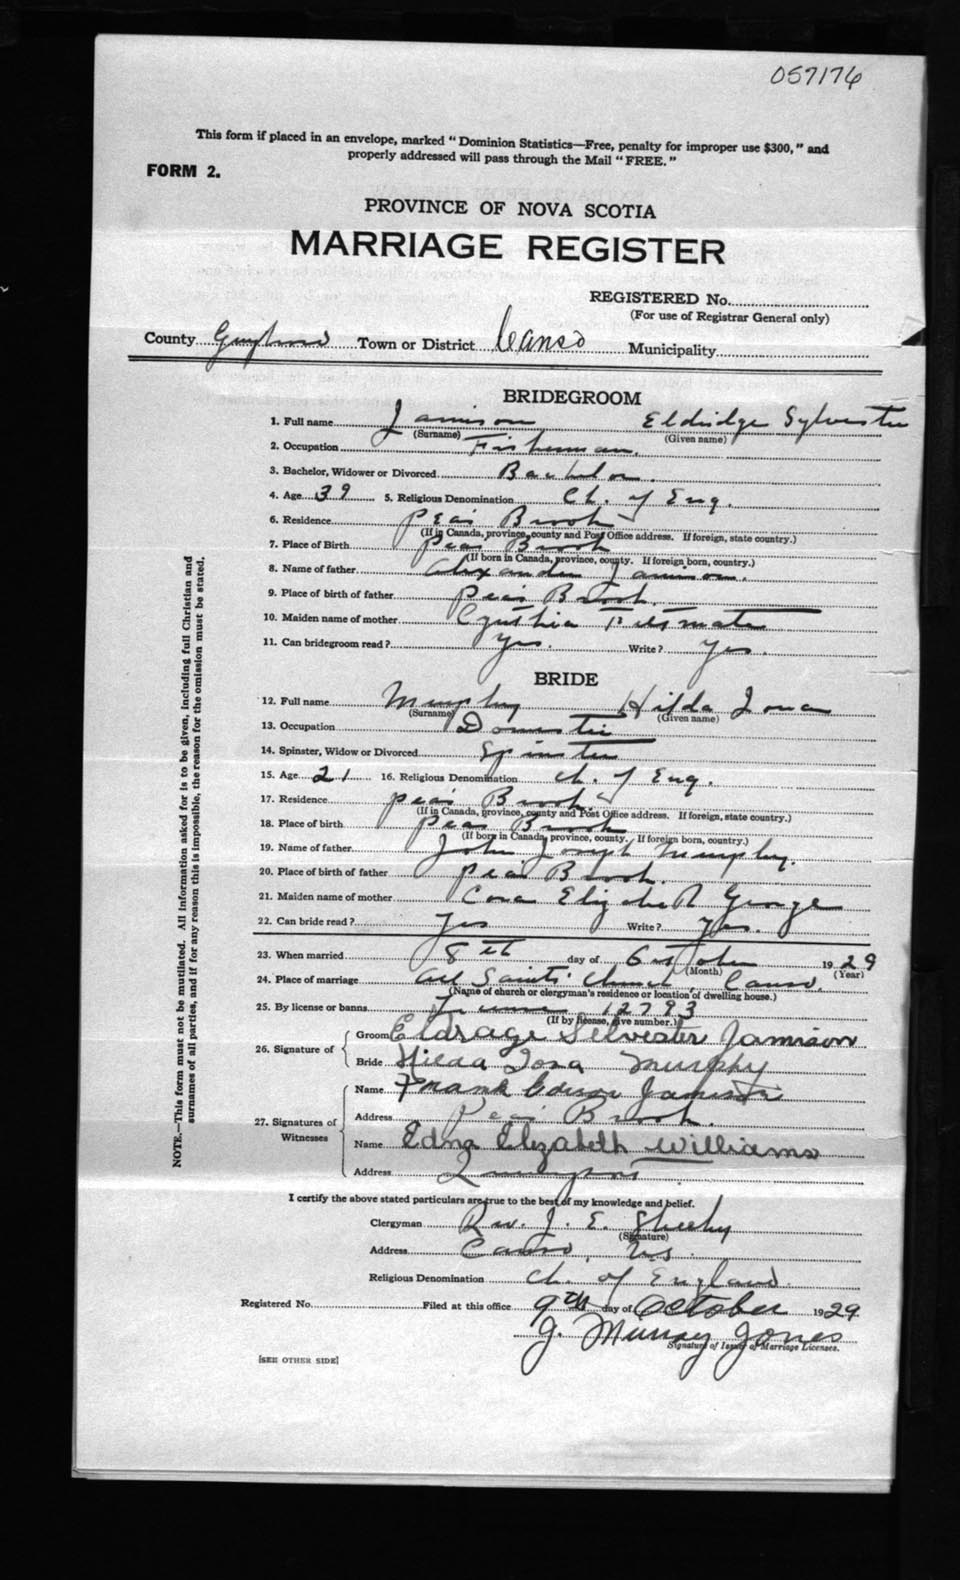 057176
This form if placed in an envelope, marked "Dominion Statistics—Free, penalty for improper use $300," and
properly addressed will pass through the Mail "FREE."
FORM 2.
PROVINCE OF NOVA SCOTIA
MARRIAGE REGISTER
REGISTERED No.
(For use of Registrar General only)
County Town or District Canso Municipality
BRIDEGROOM
1. Full name Jamison Eldridge Sylvester
(Surname) (Given name)
2. Occupation Fisherman.
3. Bachelor, Widower or Divorced Bachelor.
4. Age 39 5. Religious Denomination Ch. of Eng.
6. Residence Peas Brook
(If in Canada, province, county and Post Office address. If foreign, state country.)
7. Place of Birth Peas Brook
(If born in Canada, province, county. If foreign born, country.)
8. Name of father Alexander Jamison.
9. Place of birth of father Peas Brook.
10. Maiden name of mother Cynthia
11. Can bridegroom read? Yes. Write? Yes.
BRIDE
12. Full name Murphy Hilda Iona
(Surname) (Given name)
13. Occupation Domestic
14. Spinster, Widow or Divorced Spinster
15. Age 21 16. Religious Denomination Ch. of Eng.
17. Residence Peas Brook
(If in Canada, province, county and Post Office address. If foreign, state country.)
18. Place of birth Peas Brook
(If born in Canada, province, county. If foreign born, country.)
19. Name of father John Joseph Murphy.
20. Place of birth of father Peas Brook.
21. Maiden name of mother Cora Elizabeth George
22. Can bride read? Yes Write? Yes.
23. When married 8th day of October 1929
(Month) (Year)
24. Place of marriage All Saints' Church, Canso.
(Name of church or clergyman's residence or location of dwelling house.)
25. By license or banns License 12793
(If by license, give number.)
26. Signature of Groom Eldrage Selvester Jamison
Bride Hilda Iona Murphy
27. Signatures of Witnesses Name Frank Jamison
Address Peas Brook.
Name Edna Elizabeth Williams
Address
I certify the above stated particulars are true to the best of my knowledge and belief.
Clergyman Rev. J. E. Sheehy
(Signature)
Address Canso, N.S.
Religious Denomination Ch. of England.
Registered No. Filed at this office 9th day of October 1929
J. Murray Jones
Signature of Issuer of Marriage Licenses.
[SEE OTHER SIDE]
NOTE.—This form must not be mutilated. All information asked for is to be given, including full Christian and
surnames of all parties, and if for any reason this is impossible, the reason for the omission must be stated.